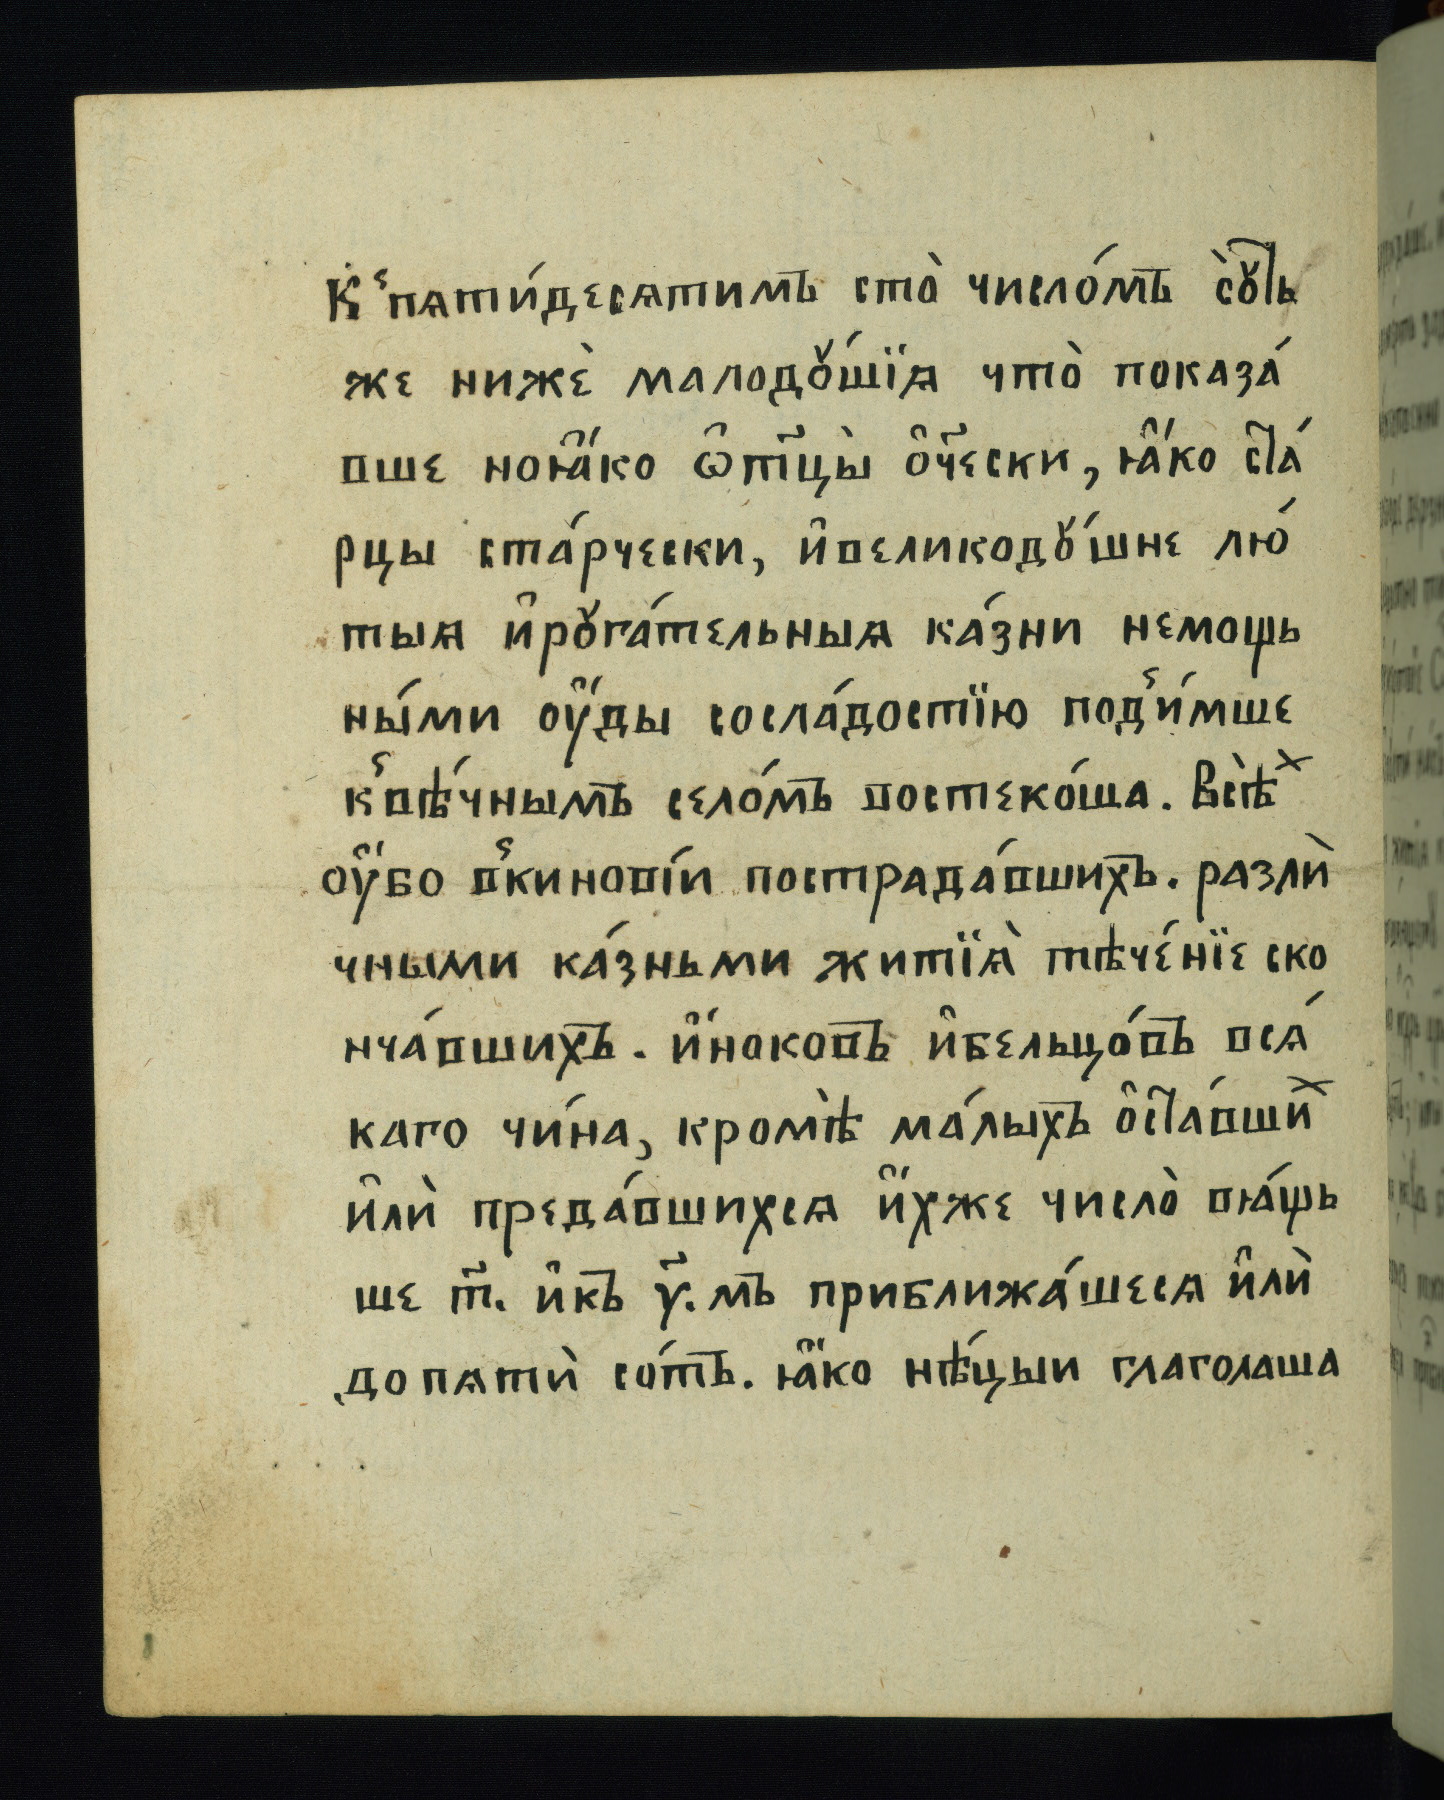 К̾ пѧти́десѧтимъ сто̀ число́мъ сꙋ̀ть
же нижѐ малодꙋ́шїѧ что̀ показа́
вше ноꙗ҆́ко ѿтцы̀ о҆ч҃ески, ꙗ҆́ко ста́
рцы ста́рчески, и҆великодꙋ́шне лю́
тыѧ и҆рꙋга́тельныѧ ка́зни немощь
ны́ми оу҆́ды сосла́достїю под̾и́мше
к̾вѣ́чнымъ село́мъ востеко́ша. Всѣ̀х
оу҆́бо в̾кинові́и пострада́вшихъ. разлѝ
чными ка́зньми житїѧ̀ тѣче́нїе ско
нча́вшихъ. и҆́ноковъ и҆бельцо́въ всѧ́
каго чи́на, кромѣ̀ ма́лыхъ о҆ста́вших
и҆лѝ преда́вшихсѧ и҆́хже число̀ вꙗ́щь
ше т҃. и҆къ у҃.мъ приближа́шесѧ и҆лѝ
до пѧтѝ со́тъ. ꙗ҆́ко нѣ́цыи глаголаша